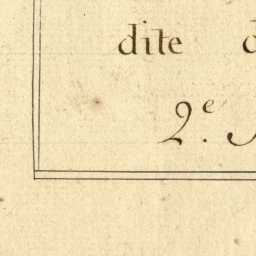 dite
2.e